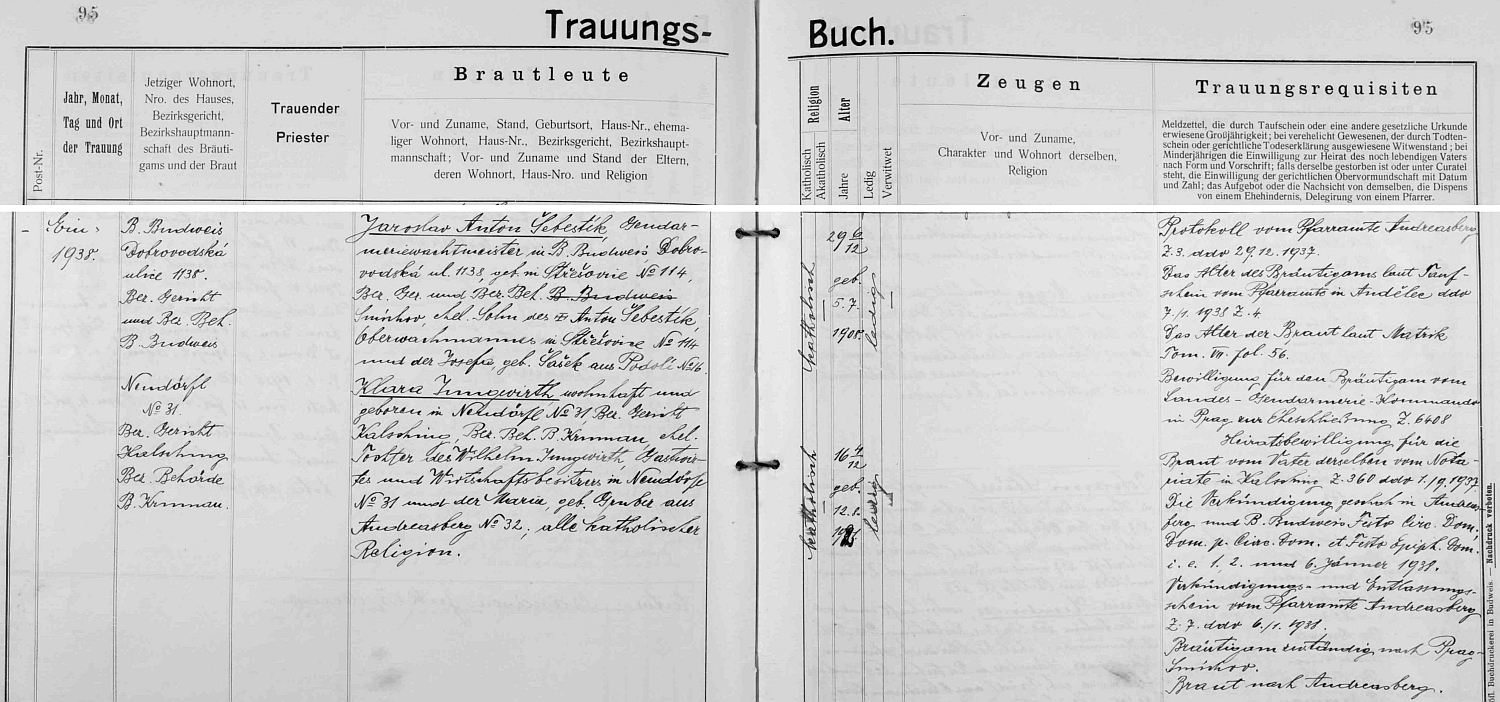 95
Trauungs-
Post-Nr.
Jahr, Monat,
Tag und Ort
der Trauung
Jetziger Wohnort,
Nro. des Hauses,
Bezirksgericht,
Bezirkshauptmann-
schaft des Bräuti-
gams und der Braut
Trauender
Priester
Brautleute
Vor- und Zuname, Stand, Geburtsort, Haus-Nr., ehema-
liger Wohnort, Haus-Nr., Bezirksgericht, Bezirkshaupt-
mannschaft; Vor- und Zuname und Stand der Eltern,
deren Wohnort, Haus-Nro. und Religion
-
1938.
B. Budweis
Dobrovodská
ulice 1138.
Ber. Gericht
und Bez. Beh.
B. Budweis
Neudörfl
No 31.
Ber. Gericht
Kalsching
Ber. Behörde
B. Krumau.
Jaroslav Anton Šebestík, Gendar-
meriewachtmeister in B. Budweis Dobro-
vodská ul. 1138, geb. in Střešovic No 114,
Ber. Ger. und Ber. Beh. B. Budweis
Smíchov, ehel. Sohn des Anton Šebestík,
Oberwachmannes in No 114
und der Josefa, geb. Šašek aus Podolí No 16.
Klara Jungwirth wohnhaft und
geboren in Neudörfl No 31 Ber. Gericht
Kalsching, Ber. Beh. B. Krumau, ehel.
Tochter des Wilhelm Jungwirth, Gastwir-
tes und Wirtschaftsbesitzers in Neudörfl
No 31 und der Maria, geb. Gruber aus
Andreasberg No 32; alle katholischer
Religion.
Buch.
95
Religion
Katholisch
Akatholisch
Alter
Jahre
Ledig
Verwitwet
Zeugen
Vor- und Zuname,
Charakter und Wohnort derselben,
Religion
Trauungsrequisiten
Meldzettel, die durch Taufschein oder eine andere gesetzliche Urkunde
erwiesene Großjährigkeit; bei verehelicht Gewesenen, der durch Todten-
schein oder gerichtliche Todeserklärung ausgewiesene Witwenstand; bei
Minderjährigen die Einwilligung zur Heirat des noch lebendigen Vaters
nach Form und Vorschrift; falls derselbe gestorben ist oder unter Curatel
steht, die Einwilligung der gerichtlichen Obervormundschaft mit Datum
und Zahl; das Aufgebot oder die Nachsicht von demselben, die Dispens
von einem Ehehindernis, Delegirung von einem Pfarrer.
katholisch
29 6/12
geb.
5.7.
1908.
ledig
katholisch
16 4/12
geb.
12.8.
ledig
Protokoll vom Pfarramte Andreasberg
Z. 3. ddo 29.12.1937.
Das Alter des Bräutigams laut Tauf-
schein vom Pfarramte in Anděle ddo
7./1. 1938 Z. 4
Das Alter der Braut laut Matrik
Tom. VII. fol. 56.
Bewilligung für den Bräutigam vom
Landes-Gendarmerie-Kommando
in Prag zur Eheschließung Z. 6408
Heiratsbewilligung für die
Braut vom Vater derselben vom Nota-
riate in Kalsching Z. 360 ddo 1.10.1937
Die Verkündigung geschah in Andreas-
berg und B. Budweis Festo Circ. Dom.,
Dom. p. Circ. Dom. et Festo Epiph. Dom.
i. e. 1. 2. und 6. Jänner 1938.
Verkündigungs- und Entlassungs-
schein vom Pfarramte Andreasberg
Z. 7. ddo 6./1. 1938.
Bräutigam zuständig nach Prag-
Smíchov.
Braut nach Andreasberg.
Buchdruckerei in Budweis. — Nachdruck verboten.